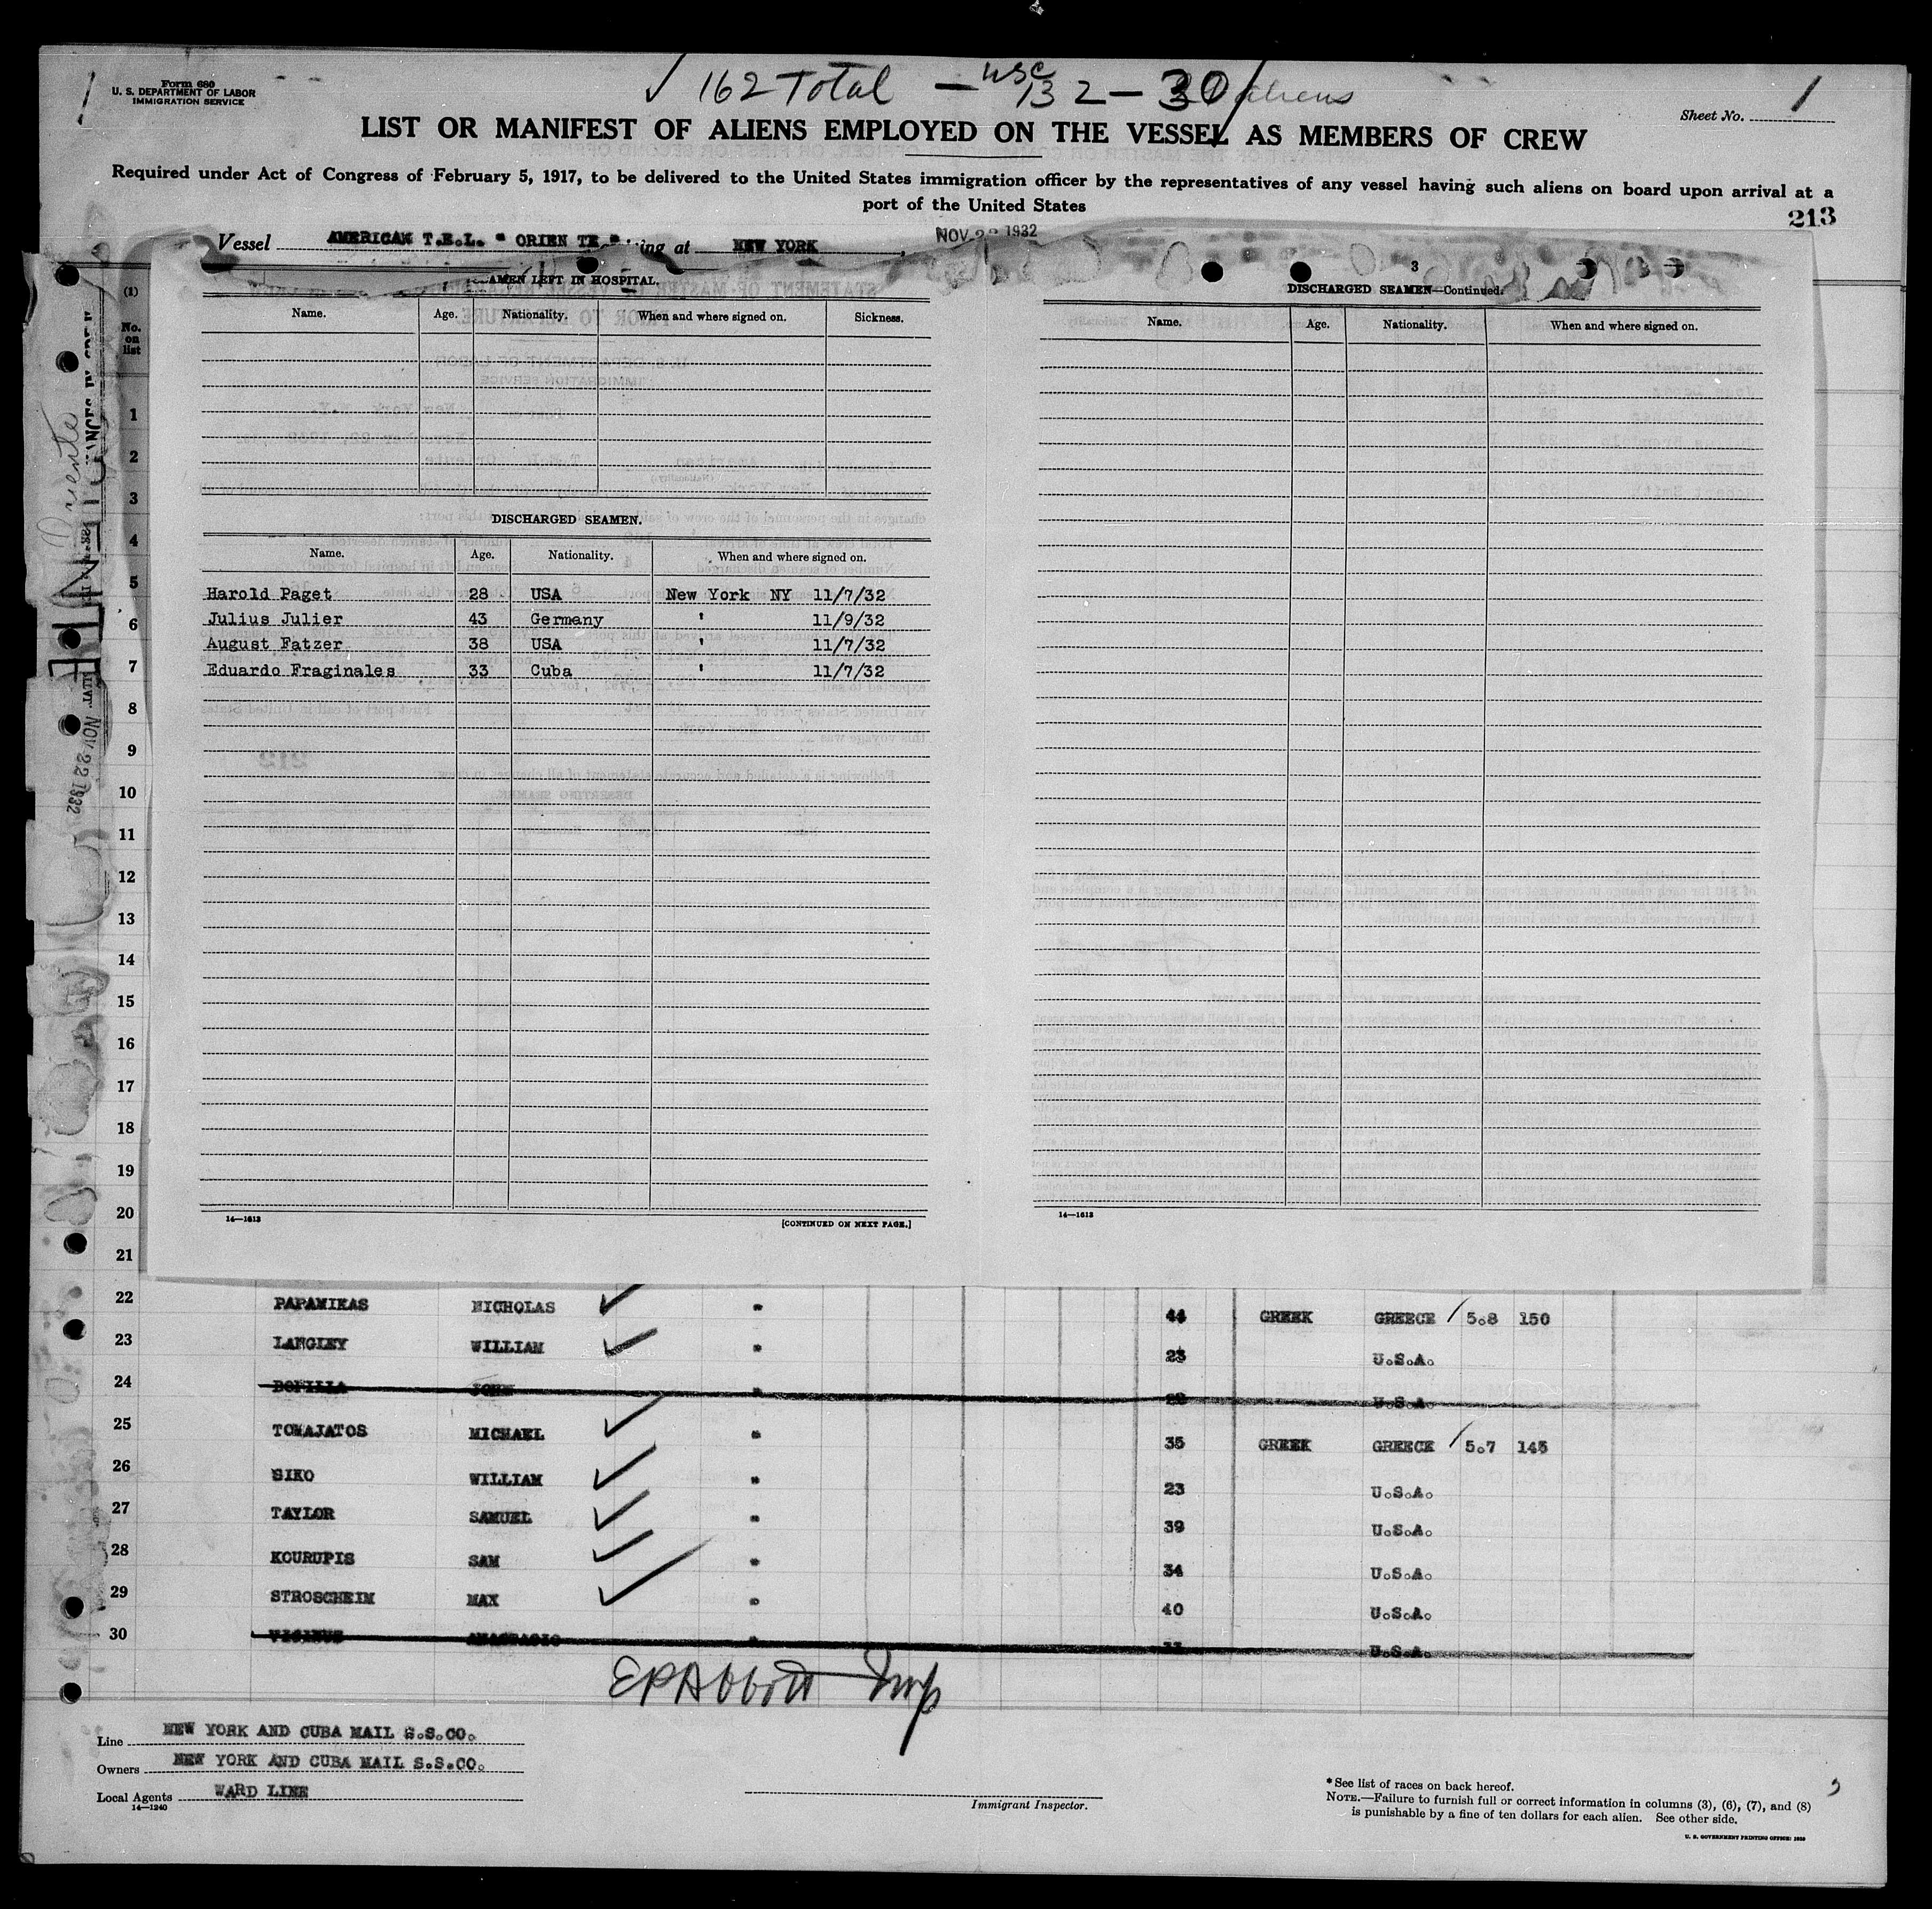 Form 680
U. S. DEPARTMENT OF LABOR
IMMIGRATION SERVICE
162 Total — usc 132 — 30 aliens
Sheet No. 1
LIST OR MANIFEST OF ALIENS EMPLOYED ON THE VESSEL AS MEMBERS OF CREW
Required under Act of Congress of February 5, 1917, to be delivered to the United States immigration officer by the representatives of any vessel having such aliens on board upon arrival at a
port of the United States
213
Vessel AMERICAN T.E.L. " ORIENTE " ing at NEW YORK, NOV 22 1932
AMEN LEFT IN HOSPITAL.
Name. Age. Nationality. When and where signed on. Sickness.
DISCHARGED SEAMEN.
Name. Age. Nationality. When and where signed on.
Harold Paget 28 USA New York NY 11/7/32
Julius Julier 43 Germany ' 11/9/32
August Fatzer 38 USA ' 11/7/32
Eduardo Fraginales 33 Cuba ' 11/7/32
14—1613
[CONTINUED ON NEXT PAGE.]
3
DISCHARGED SEAMEN—Continued.
Name. Age. Nationality. When and where signed on.
14—1613
(1)
No.
on
list
1
2
3
4
5
6
7
8
9
10
11
12
13
14
15
16
17
18
19
20
21
Oriente
NOV 22 1932
22 PAPAMIKAS NICHOLAS " 44 GREEK GREECE 5.8 150
23 LANGLEY WILLIAM " 23 U.S.A.
24 BOFILLA JOHN " U.S.A.
25 TOMAJATOS MICHAEL " 35 GREEK GREECE 5.7 145
26 SIKO WILLIAM " 23 U.S.A.
27 TAYLOR SAMUEL " 39 U.S.A.
28 KOURUPIS SAM " 34 U.S.A.
29 STROSCHEIM MAX " 40 U.S.A.
30 ANASTASIO " U.S.A.
EPAbbott Insp
Line NEW YORK AND CUBA MAIL S.S.CO.
Owners NEW YORK AND CUBA MAIL S.S.CO.
Local Agents WARD LINE
14—1240
Immigrant Inspector.
* See list of races on back hereof.
NOTE.—Failure to furnish full or correct information in columns (3), (6), (7), and (8)
is punishable by a fine of ten dollars for each alien. See other side.